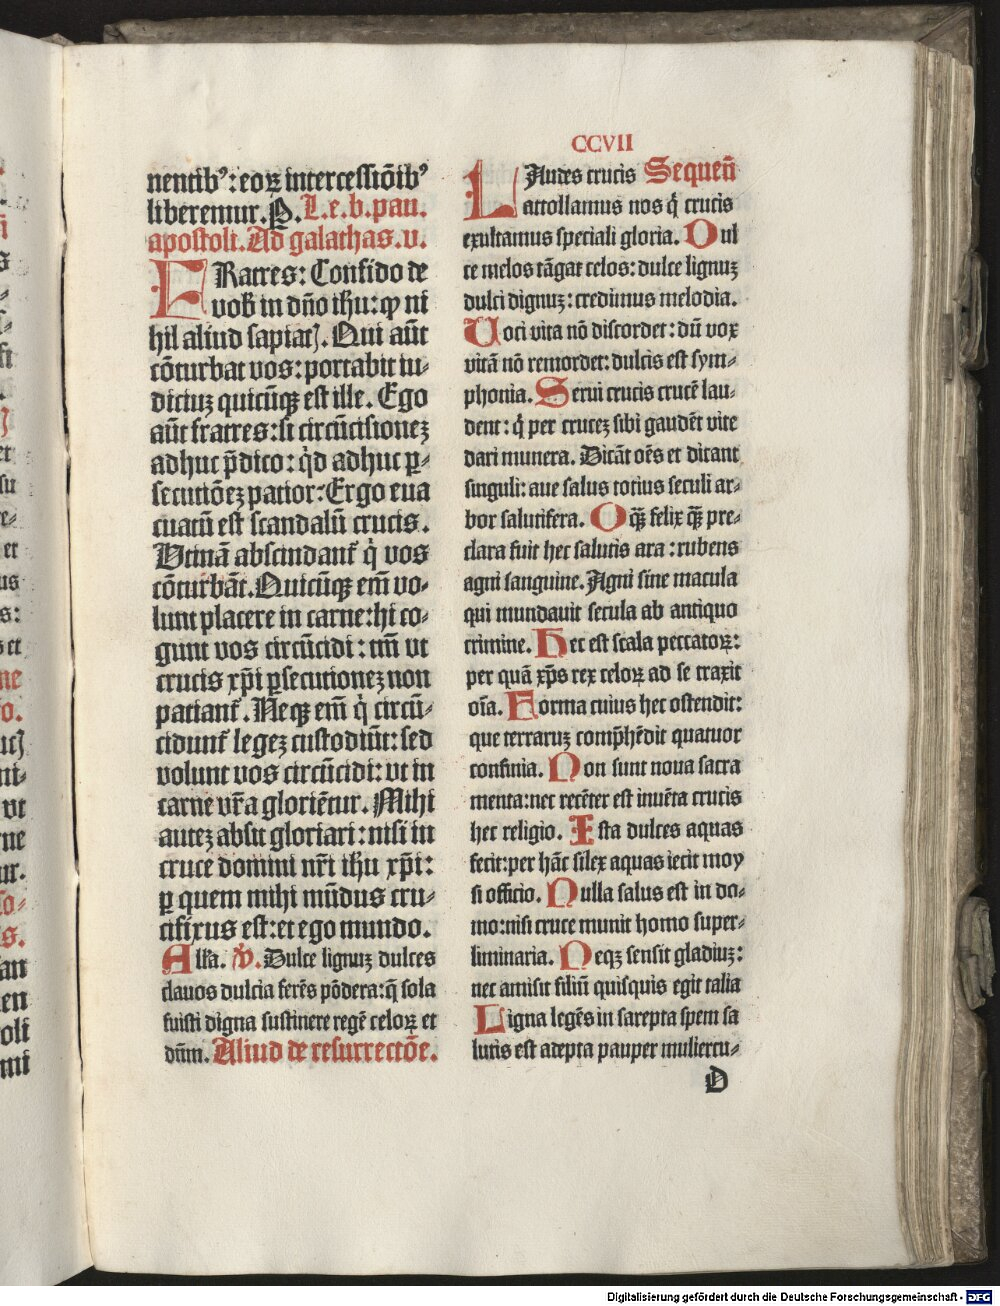 CCVII
nentibꝰ: eoꝝ intercessiōibꝰ
liberemur. P. L. e. b. pau.
apostoli. Ad galathas. v.
FRatres: Confido de
vob̄ in dn̄o ihu: ꝙ ni
hil aliud sapiatꝭ. Qui aūt
cōturbat vos: portabit iu⸗
diciuꝫ quicūqꝫ est ille. Ego
aūt fratres: si circūcisioneꝫ
adhuc p̄dico: qͥd adhuc ꝑ⸗
secutiōeꝫ patior: Ergo eua
cuatū est scandalū crucis.
Vtinā abscindant᷑ qͥ vos
cōturbāt. Quicūqꝫ em̄ vo⸗
lunt placere in carne: hi co⸗
gunt vos circūcidi: tm̄ vt
crucis xp̄i ꝑsecutioneꝫ non
patiant᷑. Neqꝫ em̄ qͥ circū⸗
cidunt᷑ legeꝫ custodiūt: sed
volunt vos circūcidi: vt in
carne vr̄a gloriēcur. Mihi
auteꝫ absit gloriari: nisi in
cruce domini nr̄i ihu xp̄i:
ꝑ quem mihi mūdus cru⸗
cifixus est: et ego mundo.
Alla. V. Dulce lignuꝫ dulces
clauos dulcia ferēs pōdera: q̄ sola
fuisti digna sustinere regē celoꝝ et
dn̄m. Aliud de resurrectōe.
LAudes crucis Sequen̄
attollamus nos qͥ crucis
exultamus speciali gloria. Dul
ce melos tāgat celos: dulce lignuꝫ
dulci dignuꝫ: credimus melodia.
Voci vita nō discordet: dū vox
vitā nō remordet: dulcis est sym⸗
phonia. Serui crucis crucē lau⸗
dent: qͥ per cruceꝫ sibi gaudēt vite
dari munera. Dicāt oēs et dicant
singuli: aue salus totius seculi ar⸗
bor salutifera. O qꝫ̄ felix qꝫ̄ pre⸗
clara fuit hec salutis ara: rubens
agni sanguine. Agni sine macula
qui mundauit secula ab antiquo
crimine. Hec est scala peccatoꝝ:
per quā xp̄s rex celoꝝ ad se traxit
oīa. Forma cuius hec ostendit:
que terraruꝫ comp̄hēdit quatuor
confinia. Non sunt noua sacra
menta: nec recēter est inuēta crucis
hec religio. Ista dulces aquas
fecit: per hāc silex aquas iecit moy
si officio. Nulla salus est in do⸗
mo: nisi cruce munit homo super⸗
liminaria. Neqꝫ sensit gladiuꝫ:
nec amisit filiū quisquis egit talia
Ligna legēs in sarepta spem sa
lutis est adepta pauper muliercu⸗
D
Digitalisierung gefördert durch die Deutsche Forschungsgemeinschaft - DFG